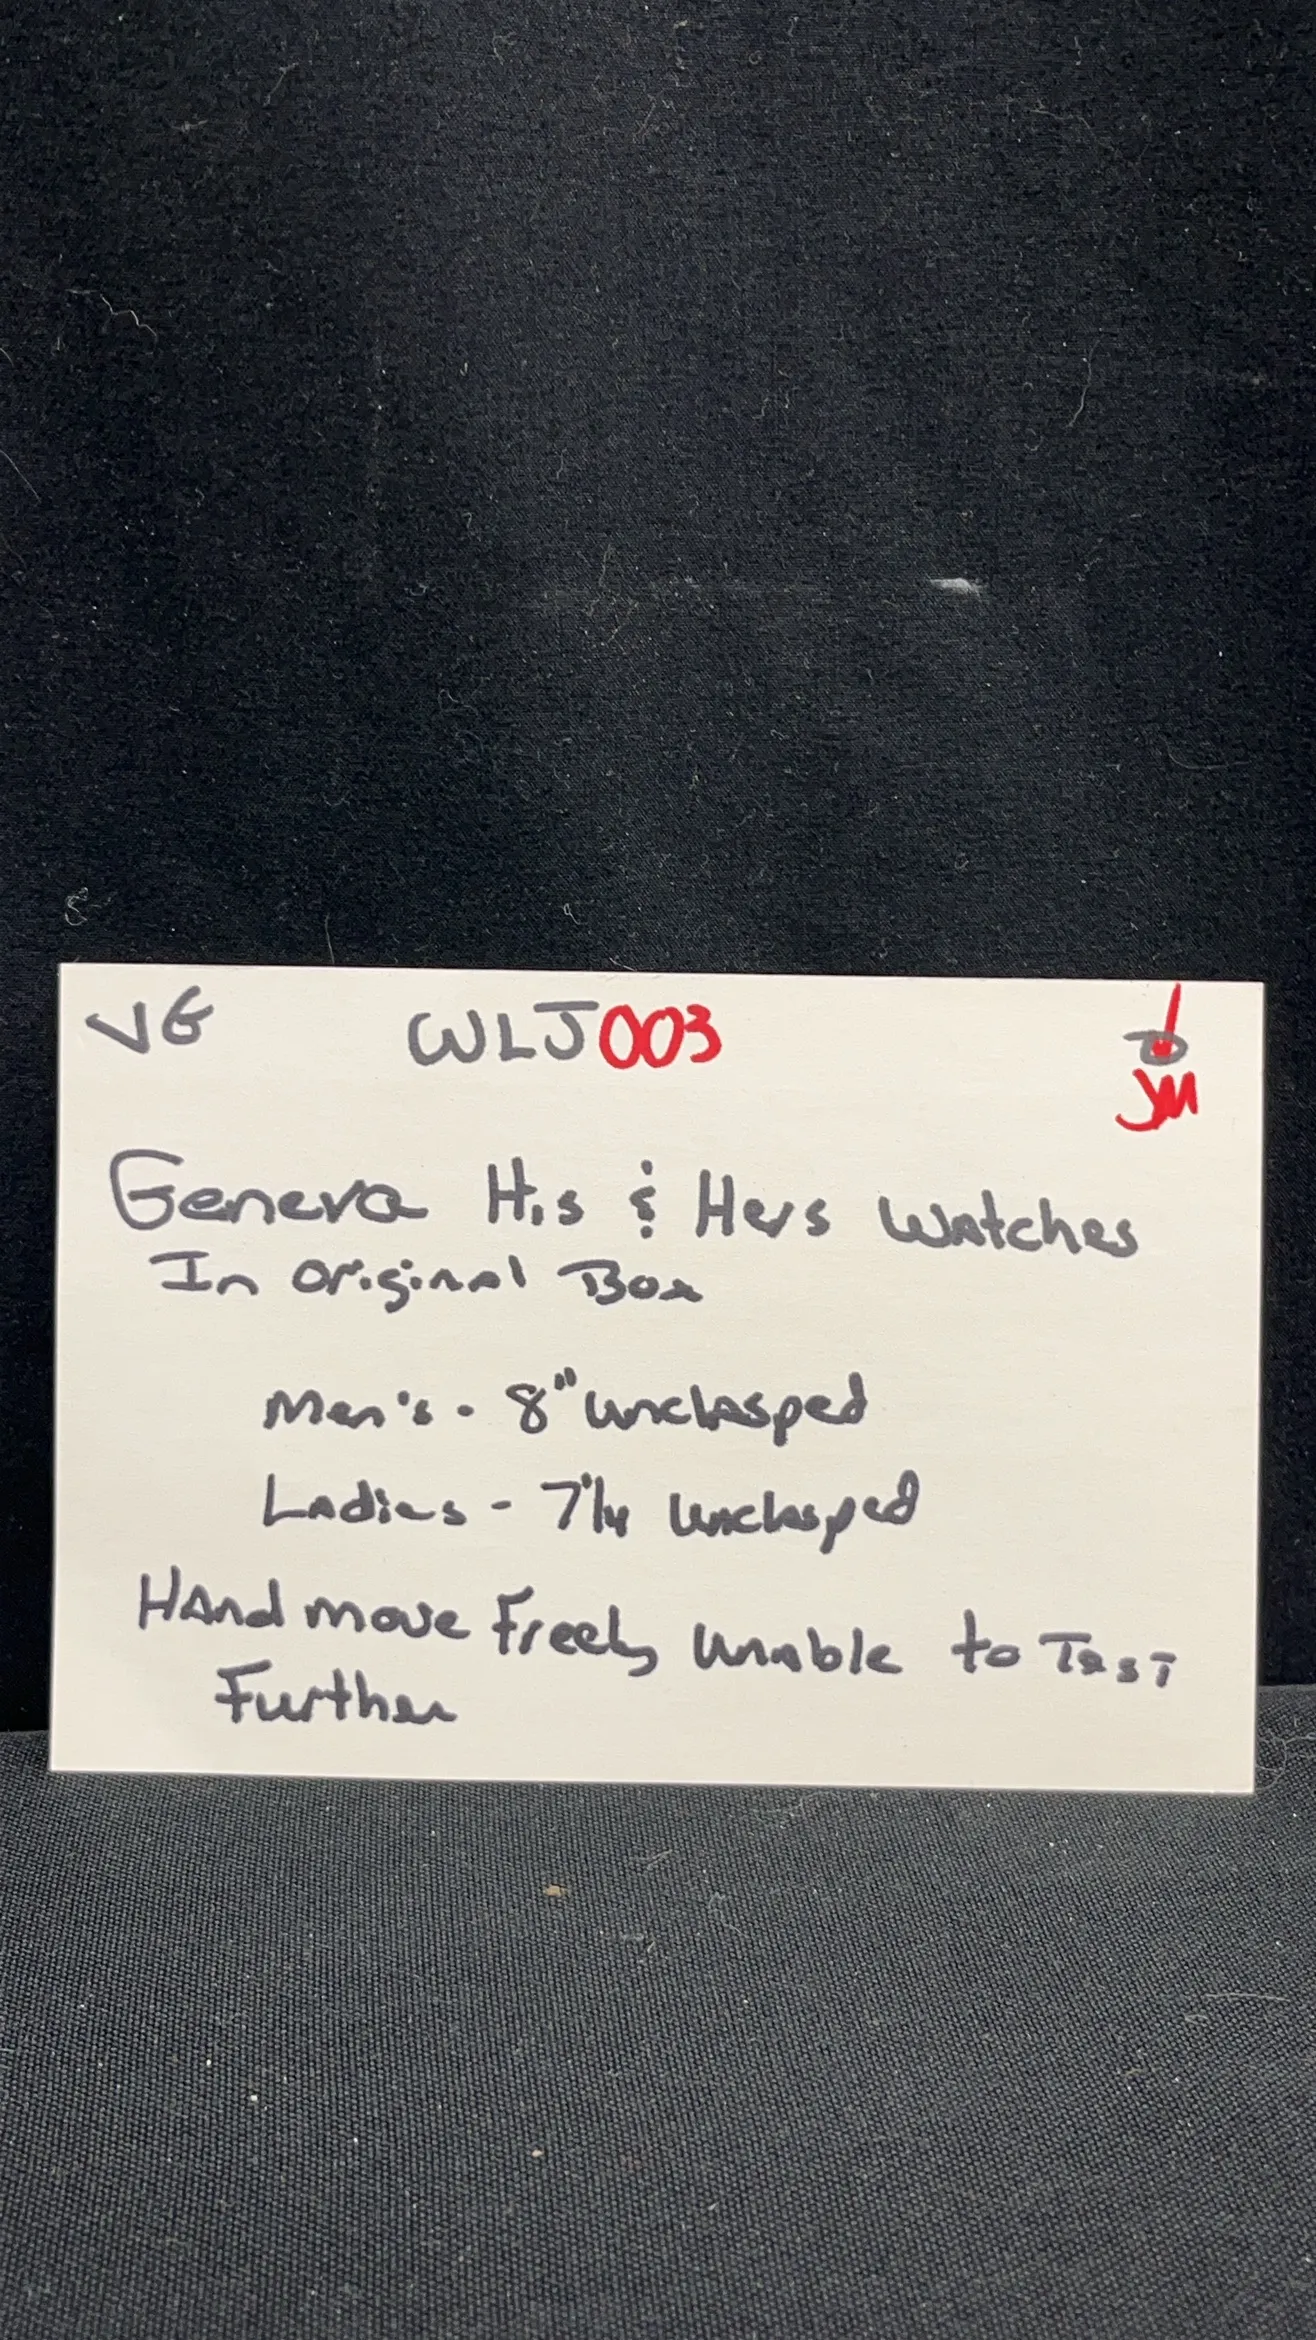 VG WLJ003
JM
Geneva His & Hers Watches
In Original Box
Men's - 8" unclasped
Ladies - 7"1/4 unclasped
Hand move Freely unable to Test
Further